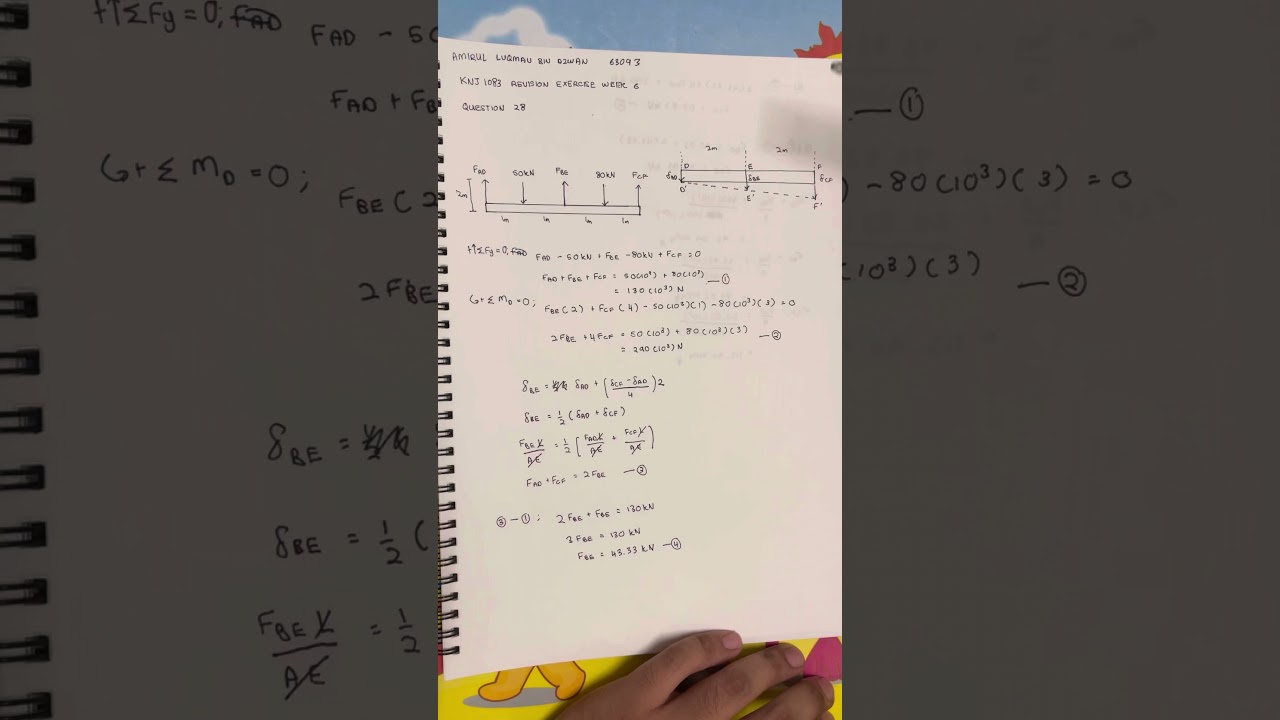 AMIRUL LUQMAN BIN DZWAN 63093
KNJ1083 REVISION EXERCISE WEEK 6
QUESTION 28
2m 2m
D E F
δAD δBE δCF
D' E' F'
FAD 50kN FBE 80kN FCF
2m
1m 1m 1m 1m
+↑ΣFy=0, FAD - 50kN + FBE - 80kN + FCF = 0
FAD + FBE + FCF = 50(10³) + 80(10³) — ①
= 130(10³) N
↺+ Σ MD = 0; FBE(2) + FCF(4) - 50(10³)(1) - 80(10³)(3) = 0
2FBE + 4FCF = 50(10³) + 80(10³)(3) — ②
= 290(10³) N
δBE = δAD + (δCF - δAD / 4) 2
δBE = 1/2 (δAD + δCF)
FBE L / AE = 1/2 [FAD L / AE + FCF L / AE]
FAD + FCF = 2FBE — ③
③ — ①; 2FBE + FBE = 130kN
3FBE = 130 kN
FBE = 43.33 kN — ④
+↑ΣFy=0, FAD
FAD - 50
FAD + FB — ①
↺+ Σ MD = 0;
FBE(2 ) - 80(10³)(3) = 0
2FBE (10³)(3) — ②
δBE =
δBE = 1/2 (
FBE L / AE = 1/2